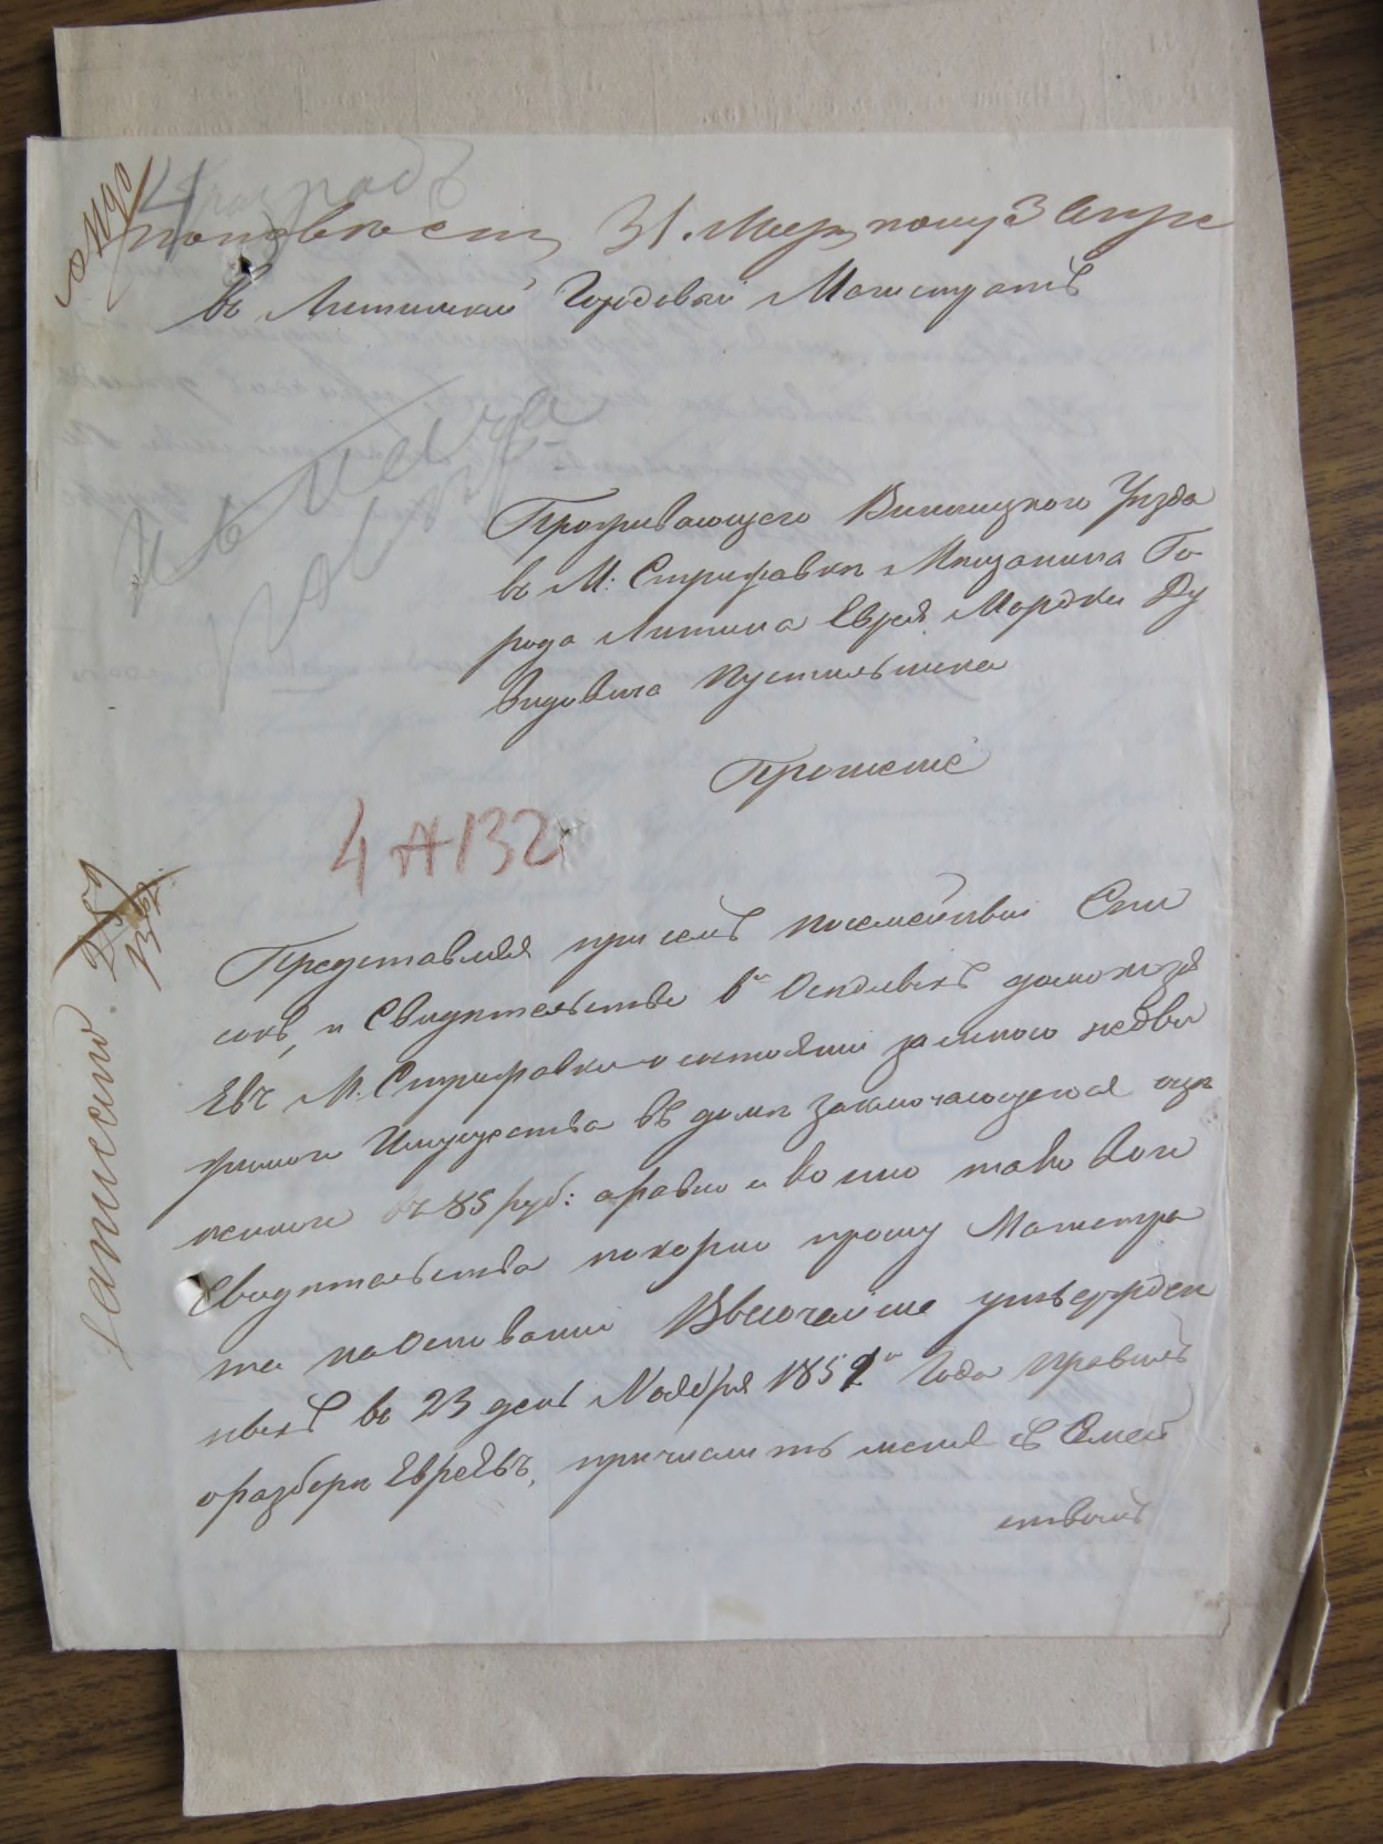 4 разрядъ
31. Мар
въ Литинский Городовый Магистратъ
Проживающаго Винницкого Уезда
въ М: Стрижавки Мещанина Го-
рода Литина Еврея Мордки Ду
видовича Пустыльника
Прошеніе
4 А 132
Представляя при семъ посемейный Спи
сокъ, и Свидетельство 6и Оседлыхъ домохозя
евъ М. Стрижавки о состоянии за мною недви
жимого Имущества въ доме заключающегося оце
неного въ 85 руб: а равно и копию таковоги
Свидетельства покорно прошу Магистра
та на Основании Высочайше утвержден
ныхъ въ 23 день Ноября 1851 Года правилъ
о разборе Евреевъ, причислить меня съ Семей
ствомъ
259
132
записано